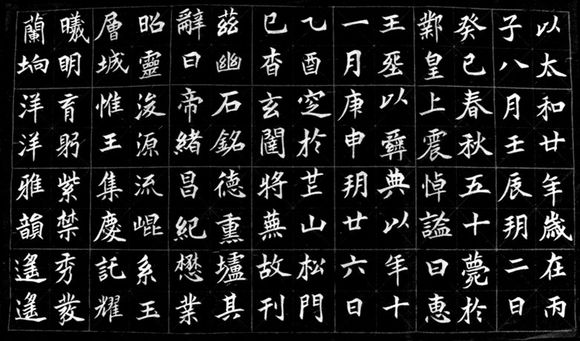 以太和廿年歲在丙
子八月壬辰朔二日
癸巳春秋五十薨於
鄴皇上震悼謚曰惠
王葬以彝典以年十
一月庚申朔廿六日
乙酉窆於芒山松門
已杳玄闥將蕪故刊
茲幽石銘德熏壚其
辭曰帝緒昌紀懋業
昭靈浚源流崐系玉
層城惟王集慶託耀
曦明育躬紫禁秀發
蘭坰洋洋雅韻遙遙